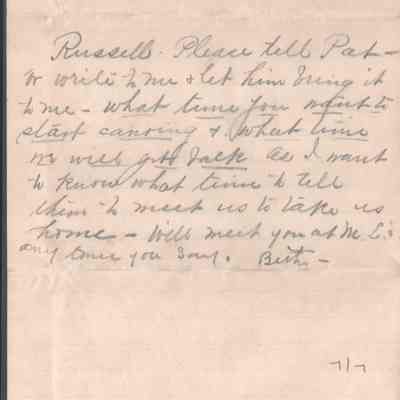 Russell. Please tell Pat –
or write to me & let him bring it
to me – what time you want to
start canoeing & what time
we will get back as I want
to know what time to tell
them to meet us to take us
home – Will meet you at M. E's
any time you say.
7/7